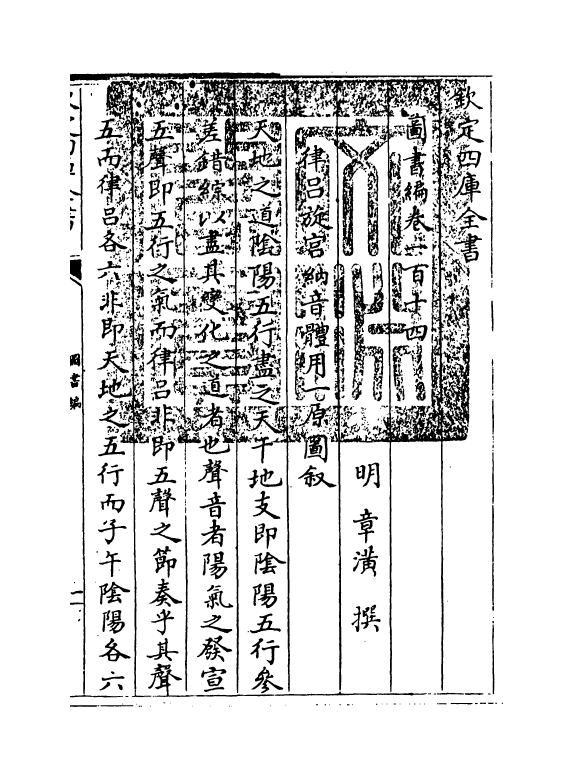 欽定四庫全書
圖書編卷一百十四
明 章潢 撰
律呂旋宮納音體用一原圖叙
天地之道陰陽五行盡之天干地支即陰陽五行參
差錯綜以盡其變化之道者也聲音者陽氣之發宣
五聲即五行之氣而律呂非即五聲之節奏乎其聲
五而律呂各六非即天地之五行而子午陰陽各六
圖書編
一